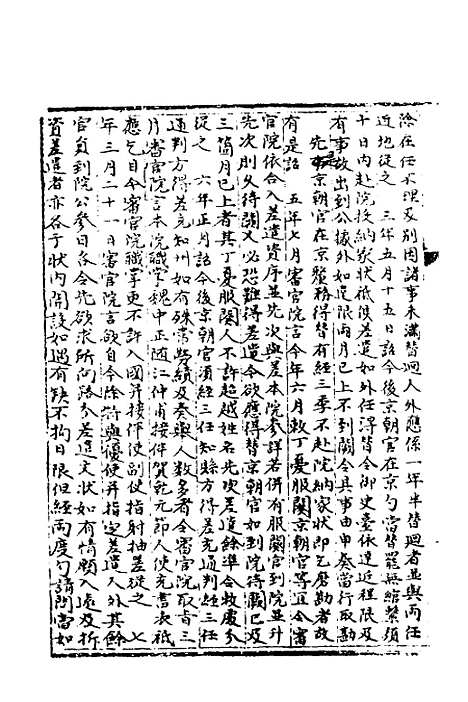 除在任不理及別因諸事未滿替迴人外應係一年半替迴者並與兩任
近地從之　三年五月十五日詔今後京朝官在京勾當替罷無縮繫須
十日內赴院投納家狀祗候差遣如外任得替令御史臺依遠近程限及
有事故出到公據外如違限兩月已上不到闕令具事由申奏當行取勘
先是京朝官在京釐務得替有經三季不赴院納家狀即乞磨勘者故
有是詔　五年七月審官院言今年六月敕丁憂服闋京朝官等宜令審
官院依合入差遣資序並先次與差本院參詳若併有服闋官到院並升
先次則久待闕人必恐難得差遣今欲應得替京朝官如到院待闕已及
三箇月已上者其丁憂服闋人不許超越姓名先次差遣餘準合敕處分
從之　六年正月詔今後京朝官須經三任知縣方得差充通判經三任
通判方得差充知州如有殊常勞績及奏舉人數多者令審官院取旨三
月審官院言本院職掌魏中正隨江仲甫接伴賀乾元節人使充書表祗
應乞自今審官院職掌更不許入國并接伴使副使指射抽差從之　七
年三月二十一日審官院言欲自今除特與優便并指定差遣人外其餘
官員到院公參日各令先欲求所向路分差遣文狀如有情願入遠及折
資差遣者亦各于狀內開設如遇有缺不拘日限但經兩度勾請問當如